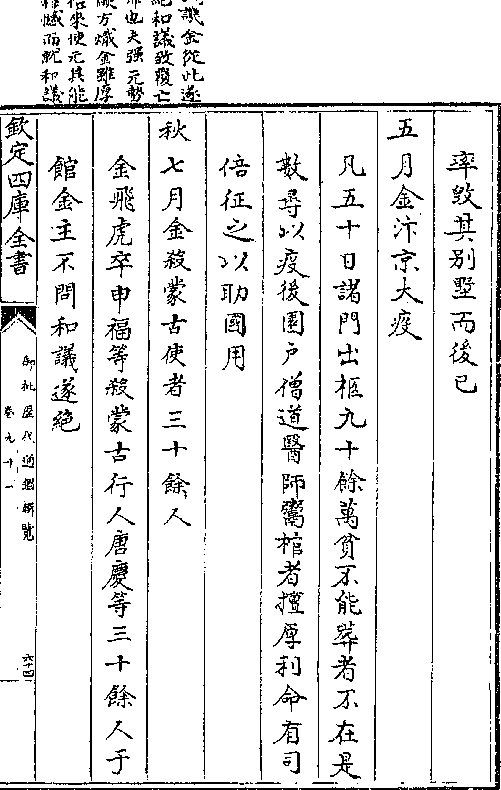 率毀其别墅而後已
五月金汴京大疫
凡五十日諸門出柩九十餘萬貧不能葬者不在是
數尋以疫後園户僧道醫師鬻棺者擅厚利命有司
倍征之以助國用
秋七月金殺蒙古使者三十餘人
金飛虎卒申福等殺蒙古行人唐慶等三十餘人于
館金主不問和議遂絶
欽定四庫全書
御批歷代通鑑輯覽
卷九十一
六十四
譏金從此遂
絶和議致覆亡
也夫强元勢
方熾金雖厚
來使元其能
憾而就和議